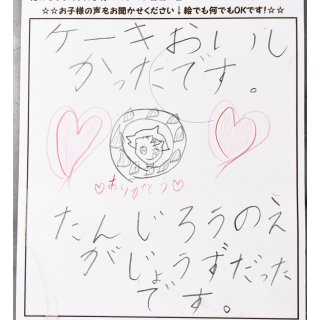 ☆☆お子様の声をお聞かせください↓絵でも何でもOKです!☆☆
ケーキおいし
かったです。
♡ありがとう♡
たんじろうのえ
がじょうずだった
です。